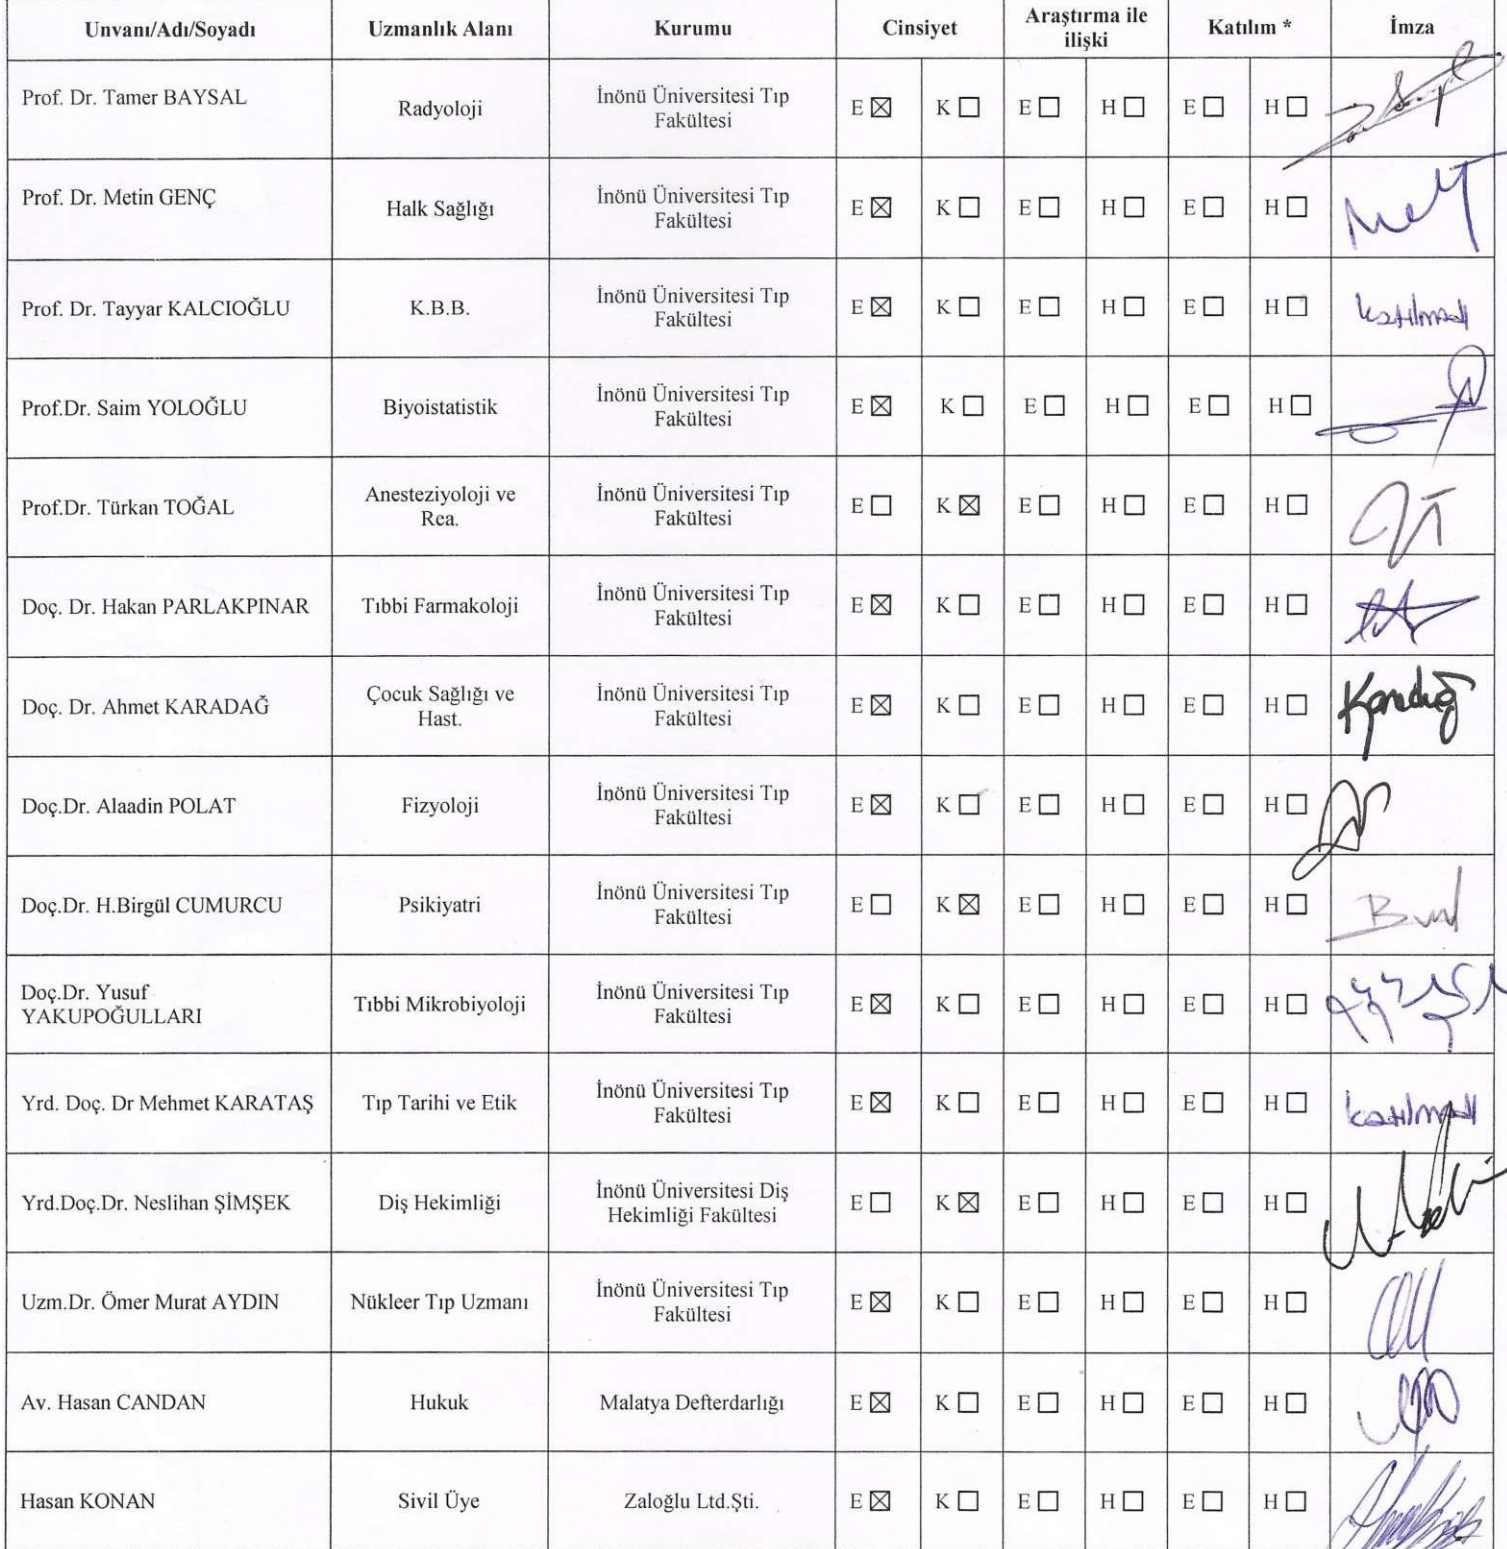 Unvanı/Adı/Soyadı Uzmanlık Alanı Kurumu Cinsiyet Araştırma ile ilişki Katılım * İmza
Prof. Dr. Tamer BAYSAL Radyoloji İnönü Üniversitesi Tıp Fakültesi E ☒ K ☐ E ☐ H ☐ E ☐ H ☐
Prof. Dr. Metin GENÇ Halk Sağlığı İnönü Üniversitesi Tıp Fakültesi E ☒ K ☐ E ☐ H ☐ E ☐ H ☐
Prof. Dr. Tayyar KALCIOĞLU K.B.B. İnönü Üniversitesi Tıp Fakültesi E ☒ K ☐ E ☐ H ☐ E ☐ H ☐ katılmadı
Prof.Dr. Saim YOLOĞLU Biyoistatistik İnönü Üniversitesi Tıp Fakültesi E ☒ K ☐ E ☐ H ☐ E ☐ H ☐
Prof.Dr. Türkan TOĞAL Anesteziyoloji ve Rea. İnönü Üniversitesi Tıp Fakültesi E ☐ K ☒ E ☐ H ☐ E ☐ H ☐
Doç. Dr. Hakan PARLAKPINAR Tıbbi Farmakoloji İnönü Üniversitesi Tıp Fakültesi E ☒ K ☐ E ☐ H ☐ E ☐ H ☐
Doç. Dr. Ahmet KARADAĞ Çocuk Sağlığı ve Hast. İnönü Üniversitesi Tıp Fakültesi E ☒ K ☐ E ☐ H ☐ E ☐ H ☐ Karadağ
Doç.Dr. Alaadin POLAT Fizyoloji İnönü Üniversitesi Tıp Fakültesi E ☒ K ☐ E ☐ H ☐ E ☐ H ☐
Doç.Dr. H.Birgül CUMURCU Psikiyatri İnönü Üniversitesi Tıp Fakültesi E ☐ K ☒ E ☐ H ☐ E ☐ H ☐
Doç.Dr. Yusuf YAKUPOĞULLARI Tıbbi Mikrobiyoloji İnönü Üniversitesi Tıp Fakültesi E ☒ K ☐ E ☐ H ☐ E ☐ H ☐
Yrd. Doç. Dr Mehmet KARATAŞ Tıp Tarihi ve Etik İnönü Üniversitesi Tıp Fakültesi E ☒ K ☐ E ☐ H ☐ E ☐ H ☐ katılmadı
Yrd.Doç.Dr. Neslihan ŞİMŞEK Diş Hekimliği İnönü Üniversitesi Diş Hekimliği Fakültesi E ☐ K ☒ E ☐ H ☐ E ☐ H ☐
Uzm.Dr. Ömer Murat AYDIN Nükleer Tıp Uzmanı İnönü Üniversitesi Tıp Fakültesi E ☒ K ☐ E ☐ H ☐ E ☐ H ☐
Av. Hasan CANDAN Hukuk Malatya Defterdarlığı E ☒ K ☐ E ☐ H ☐ E ☐ H ☐
Hasan KONAN Sivil Üye Zaloğlu Ltd.Şti. E ☒ K ☐ E ☐ H ☐ E ☐ H ☐